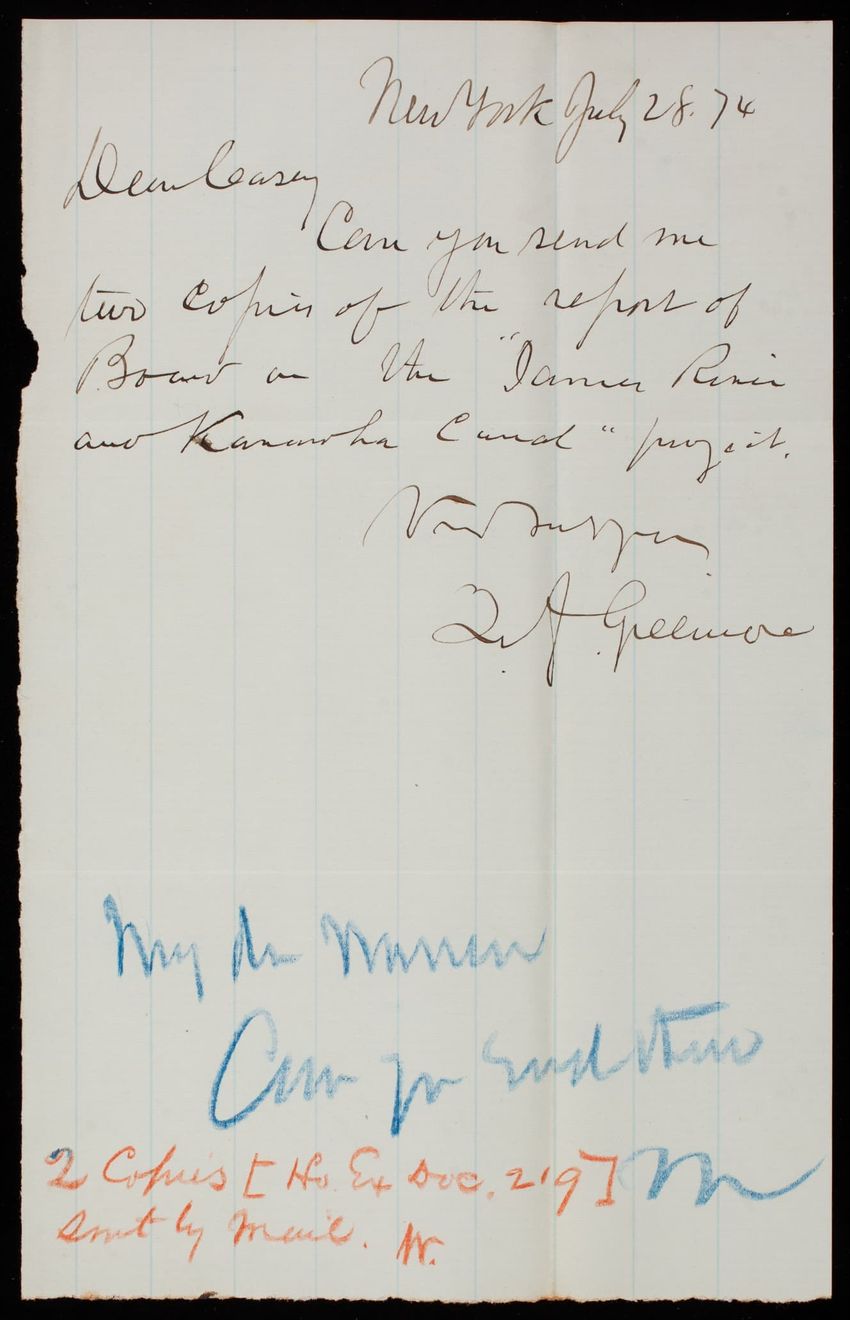 New York July 28. 74
Dear Casey
Can you send me
two copies of the report of
Board on the "James River
and Kanawha Canal" project.
Q. A. Gillmore
My dr Warren
Can yo send them
2 Copies [Ho Ex Doc. 219]
Sent by Mail. W.